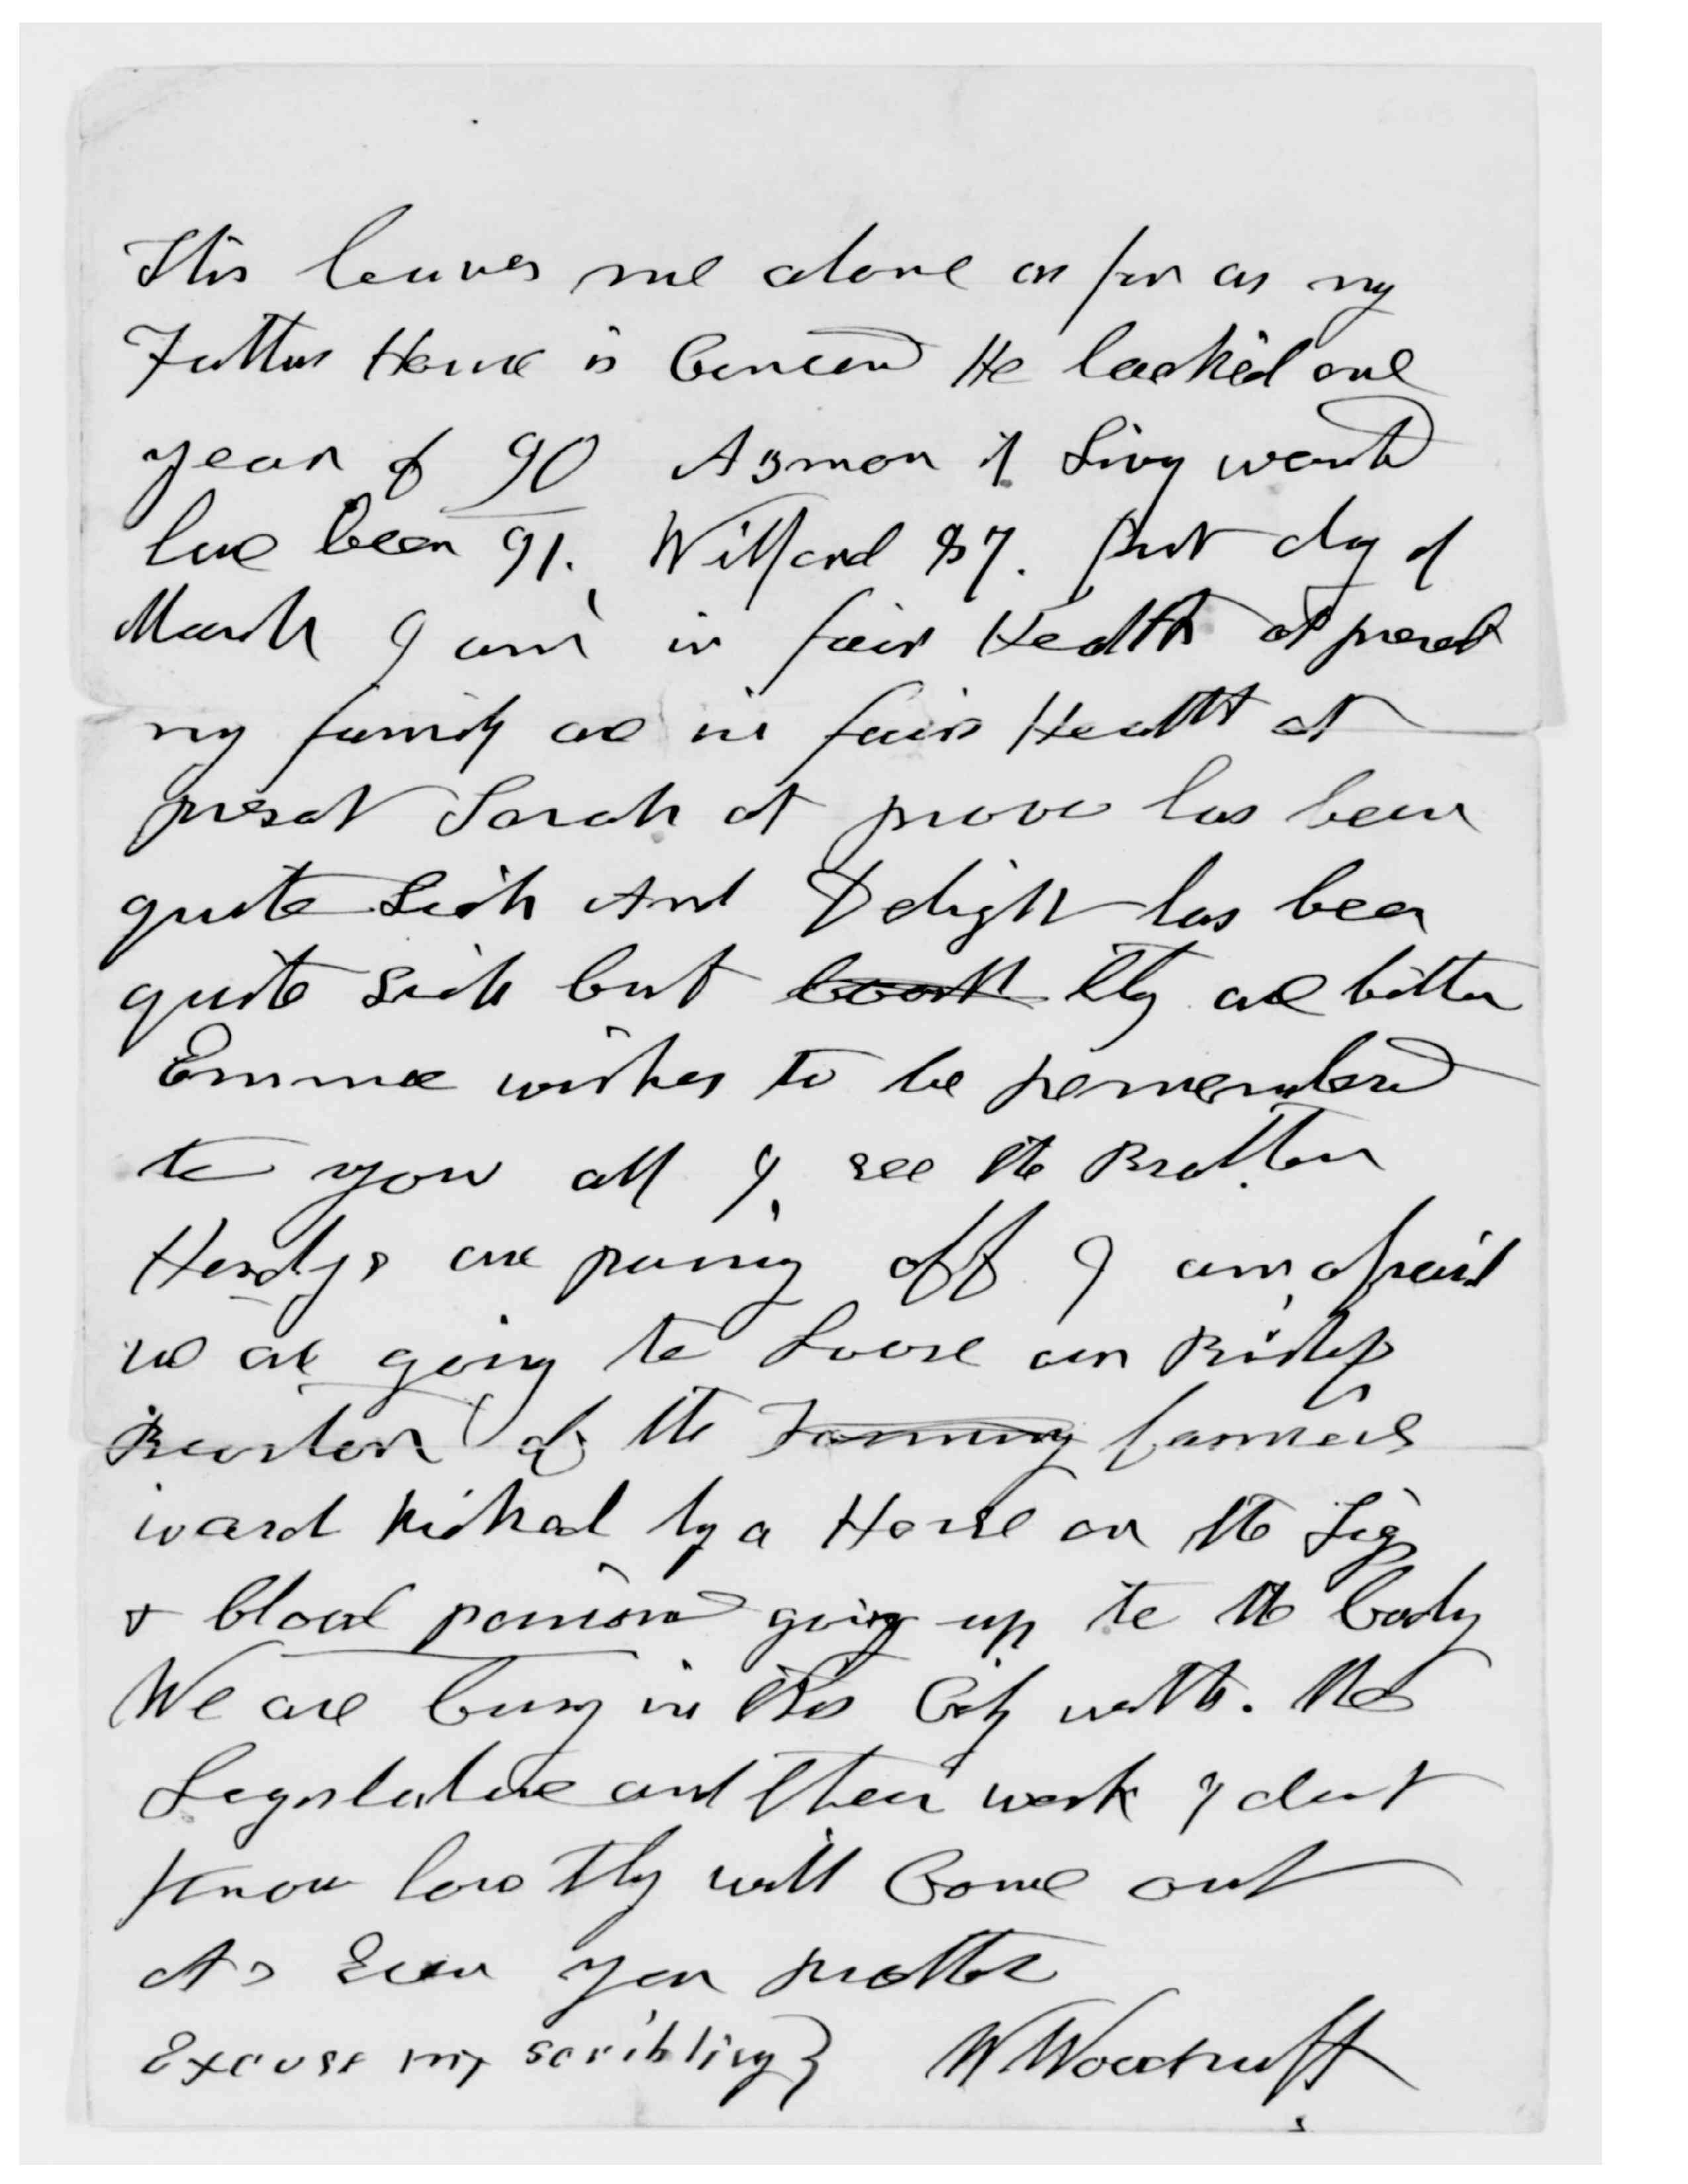 This leaves me alone as far as my
Fathers House is Concernd He lacked one
year of 90 Azmon if Livig would
have been 91. Wilford 87. first day of
March I am in fair Health at present
my family are in fair Health at
presat Sarah at provo has been
quite Sick And Delight has been
quite sick but they are better
Emma wishes to be remembered
to you all I see the Brother
Hendys are passing off I am afraid
we are going to Loose our Bishop
Burton of the Farming farmers
ward kicked by a Horse on the Leg
& blood poison going up to the body
We are busy in this City with the
Legislature and their work I dont
know how they will Come out
As Ever your Brother
Excuse my scribbling } W Woodruff